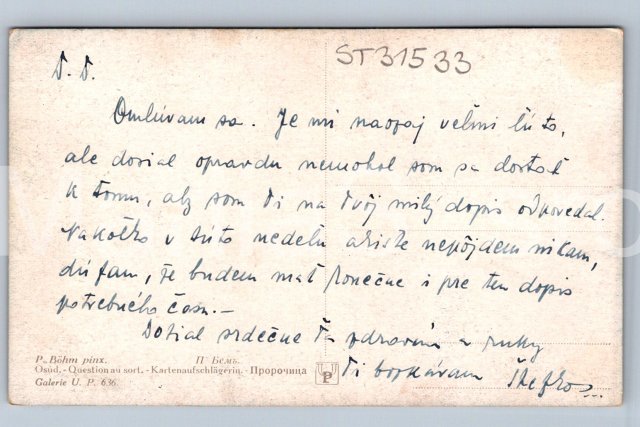 ST31533
D. D.
Omlúvam sa. Je mi naozaj veľmi ľúto,
ale dosiaľ opravdu nemohol som sa dostať
k tomu, aby som Ti na Tvôj milý dopis odpovedal.
Nakoľko v túto nedeľu ešte nepôjdem nikam,
dúfam, že budem mať konečne i pre ten dopis
potrebného času.—
Dotiaľ srdečne Ťa zdravím a ruky
Ti bozkávam
P. Böhm pinx. П. Бемъ.
Osud. - Question au sort. - Kartenaufschlägerin. - Пророчица
Galerie U. P. 636.
UP